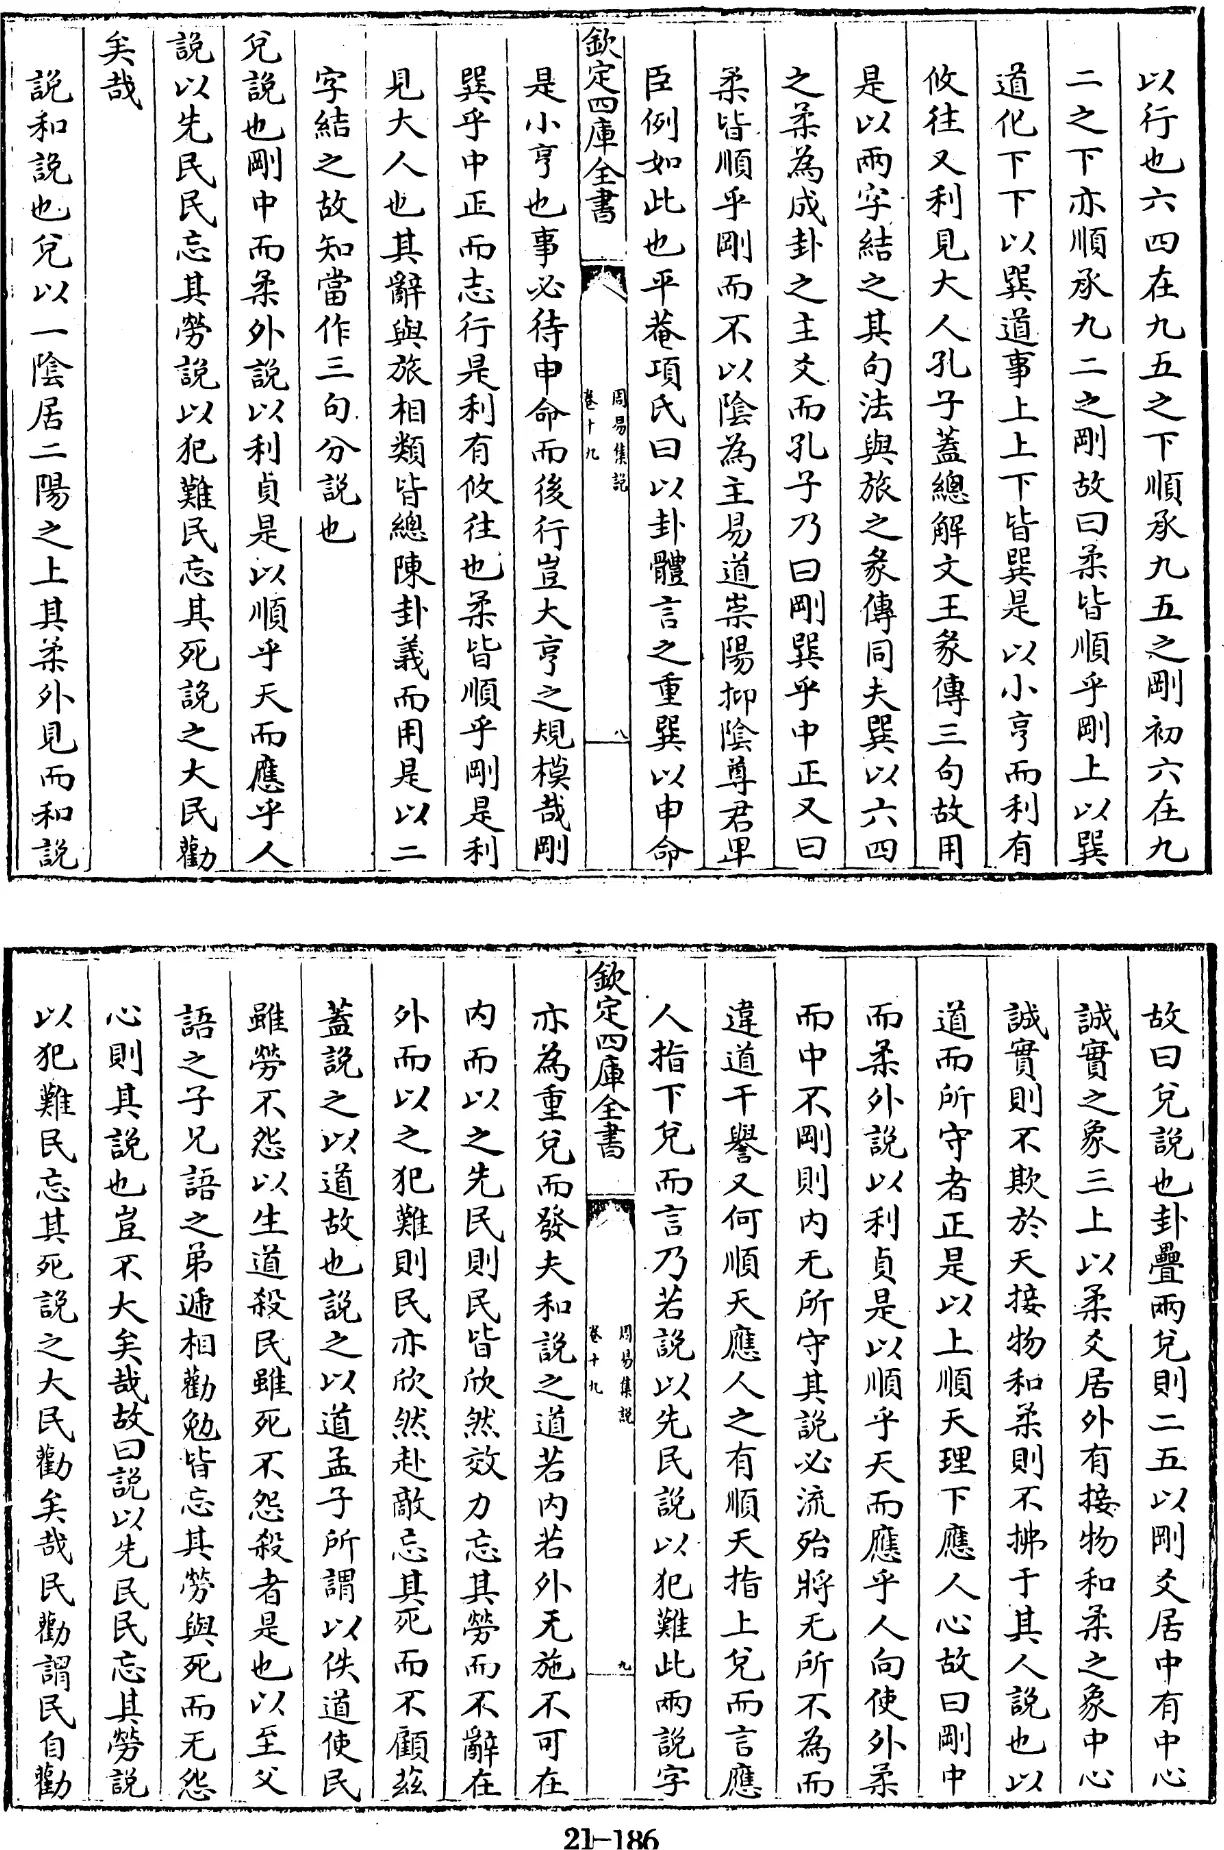 以行也六四在九五之下順承九五之剛初六在九
二之下亦順承九二之剛故曰柔皆順乎剛上以巽
道化下下以巽道事上上下皆巽是以小亨而利有
攸往又利見大人孔子蓋總解文王彖傳三句故用
是以兩字結之其句法與旅之彖傳同夫巽以六四
之柔為成卦之主爻而孔子乃曰剛巽乎中正又曰
柔皆順乎剛而不以陰為主易道崇陽抑陰尊君卑
臣例如此也平菴項氏曰以卦體言之重巽以申命
欽定四庫全書
周易集說
卷十九
八
是小亨也事必待申命而後行豈大亨之規模哉剛
巽乎中正而志行是利有攸往也柔皆順乎剛是利
見大人也其辭與旅相類皆總陳卦義而用是以二
字結之故知當作三句分說也
兌說也剛中而柔外說以利貞是以順乎天而應乎人
說以先民民忘其勞說以犯難民忘其死說之大民勸
矣哉
說和說也兌以一陰居二陽之上其柔外見而和說
故曰兌說也卦疊兩兌則二五以剛爻居中有中心
誠實之象三上以柔爻居外有接物和柔之象中心
誠實則不欺於天接物和柔則不拂于其人說也以
道而所守者正是以上順天理下應人心故曰剛中
而柔外說以利貞是以順乎天而應乎人向使外柔
而中不剛則内无所守其說必流殆將无所不為而
違道干譽又何順天應人之有順天指上兌而言應
人指下兌而言乃若說以先民說以犯難此兩說字
欽定四庫全書
周易集說
卷十九
九
亦為重兌而發夫和說之道若内若外无施不可在
内而以之先民則民皆欣然效力忘其勞而不辭在
外而以之犯難則民亦欣然赴敵忘其死而不顧茲
蓋說之以道故也說之以道孟子所謂以佚道使民
雖勞不怨以生道殺民雖死不怨殺者是也以至父
語之子兄語之弟遞相勸勉皆忘其勞與死而无怨
心則其說也豈不大矣哉故曰說以先民民忘其勞說
以犯難民忘其死說之大民勸矣哉民勸謂民自勸
21-186